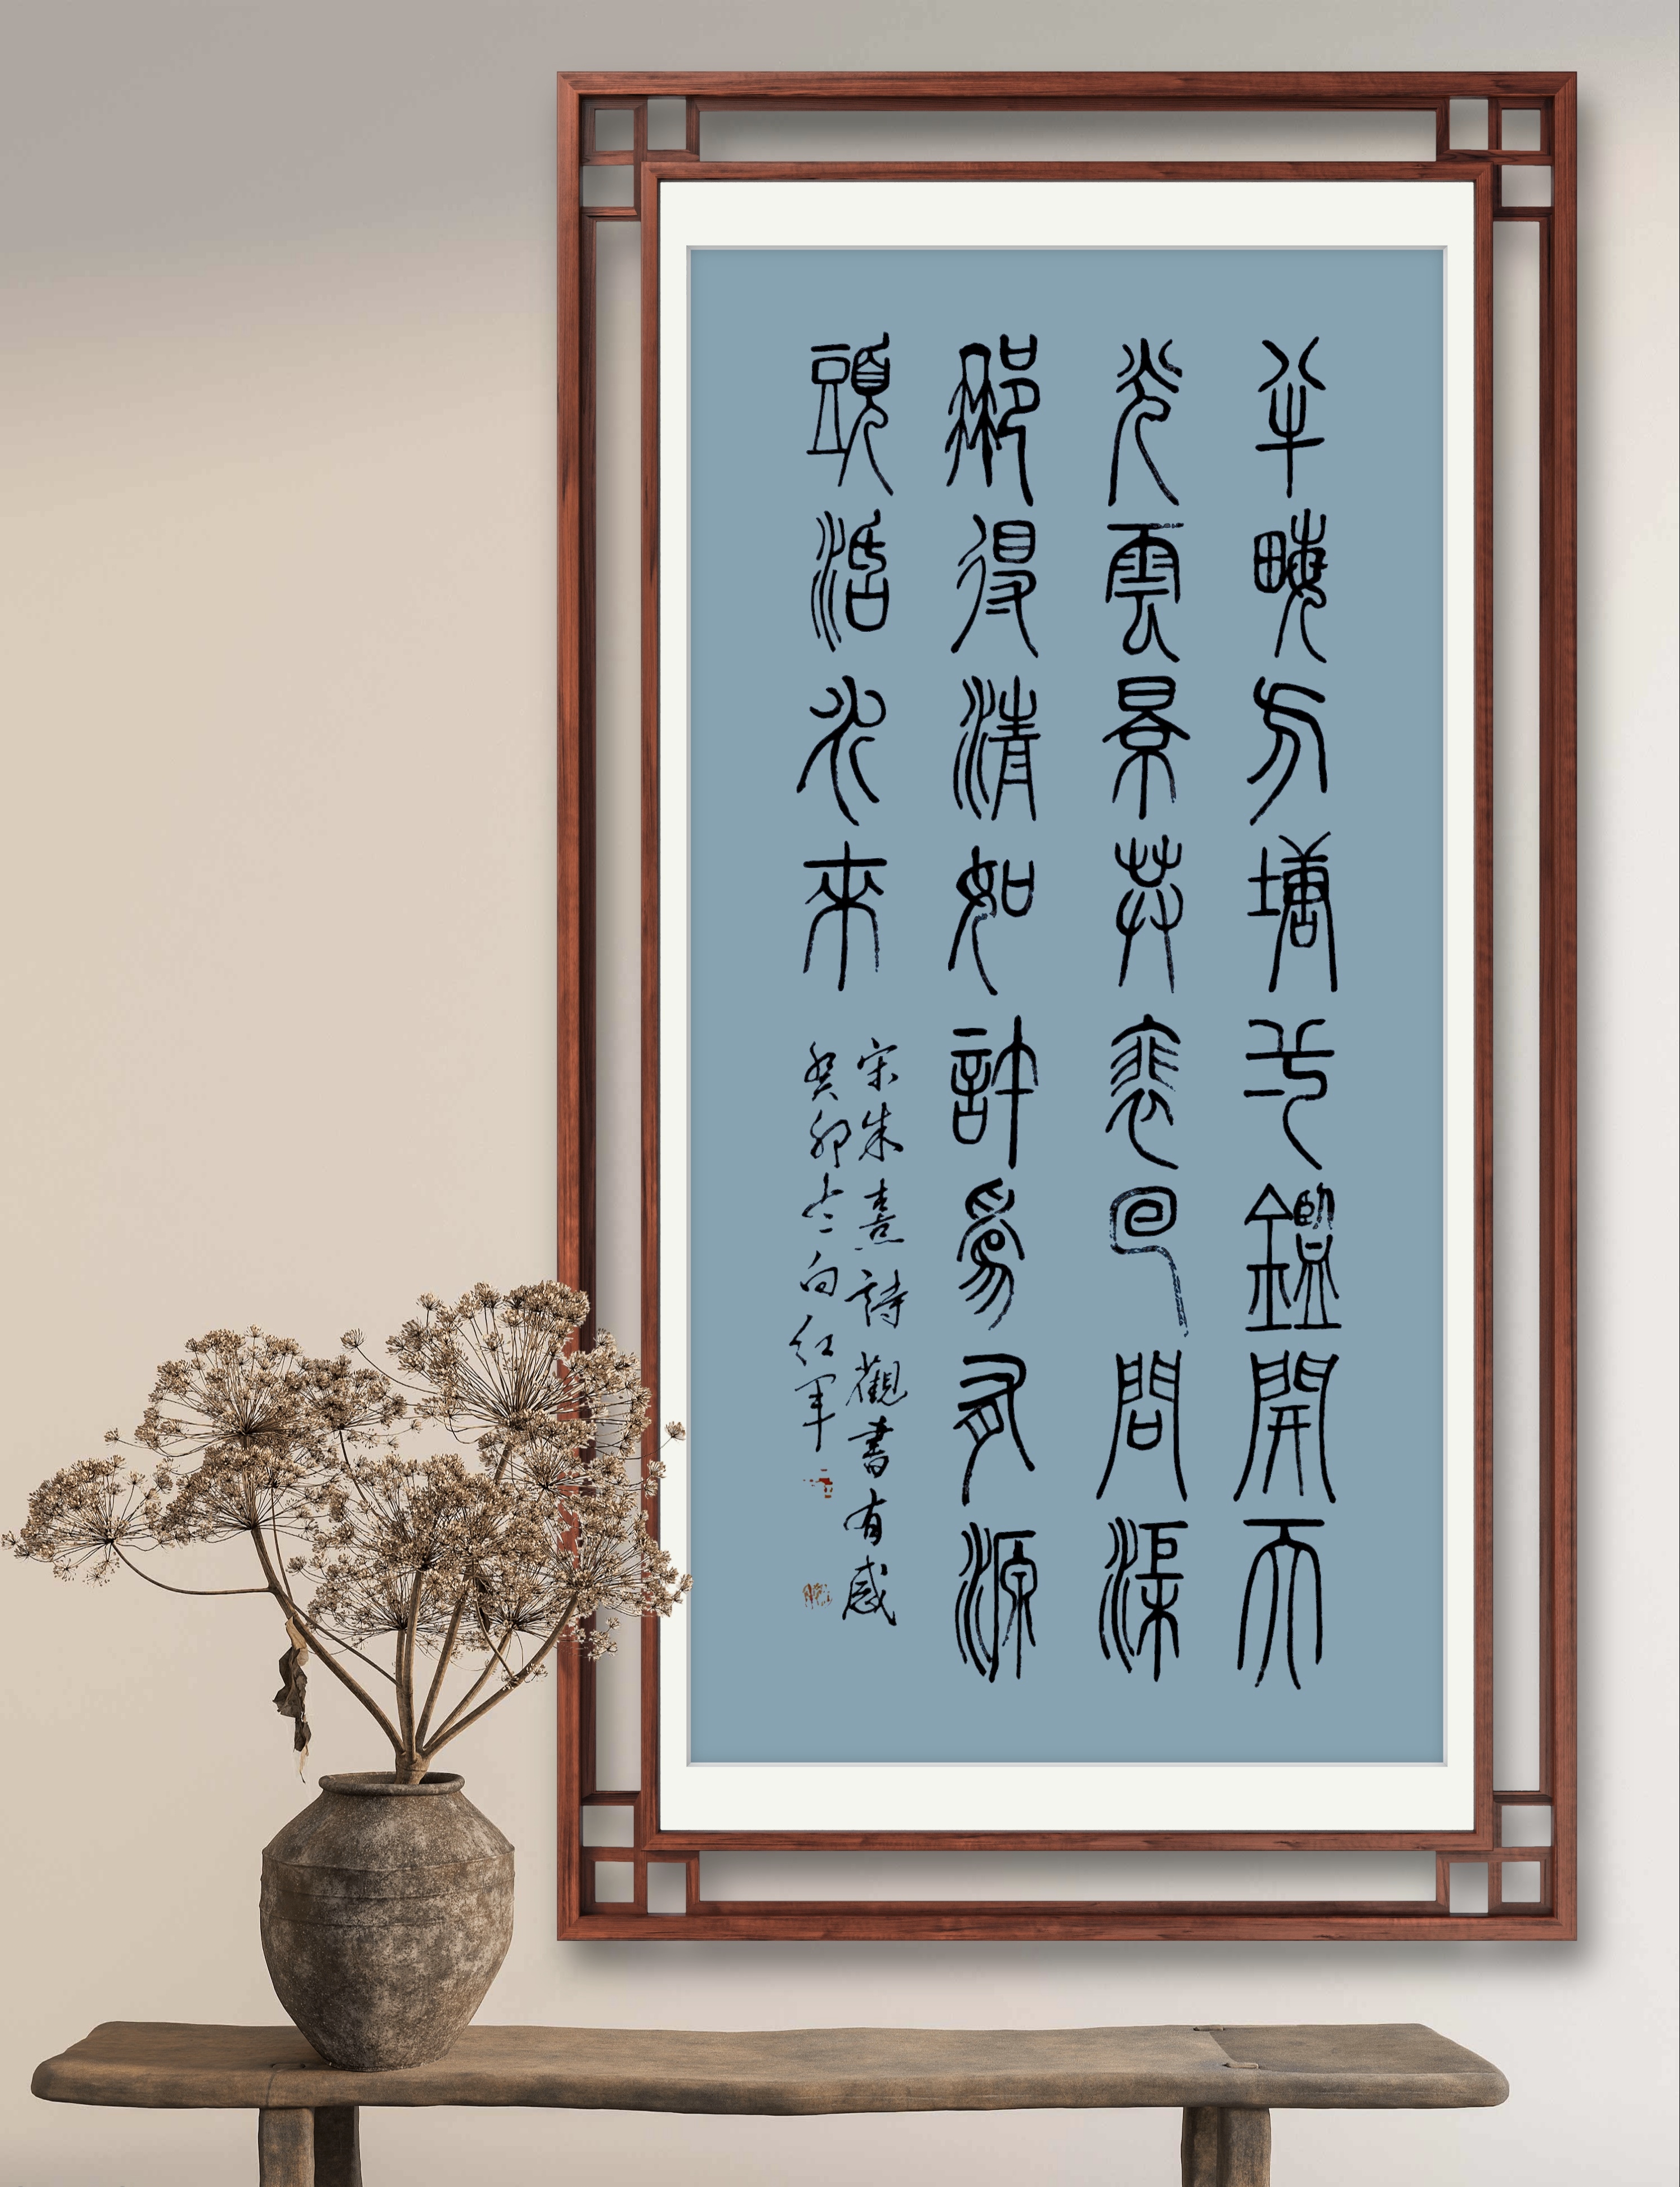 半畮方塘弌鑑開天
光雲景共裵回問渠
那得清如許為有源
頭活水來
宋朱熹詩觀書有感
癸卯冬向紅軍